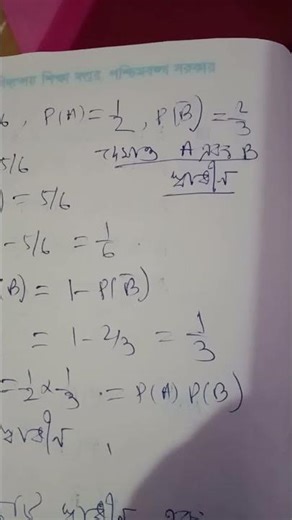 শিক্ষা দপ্তর, পশ্চিমবঙ্গ সরকার
6, P(A) = 1/2, P(B̅) = 2/3
5/6
দেখাও A এবং B
) = 5/6
স্বাধীন
- 5/6 = 1/6.
(B) = 1 - P(B̅)
= 1 - 2/3 = 1/3
= 1/2 × 1/3 . = P(A) P(B)
স্বাধীন ,
স্বাধীন এবং